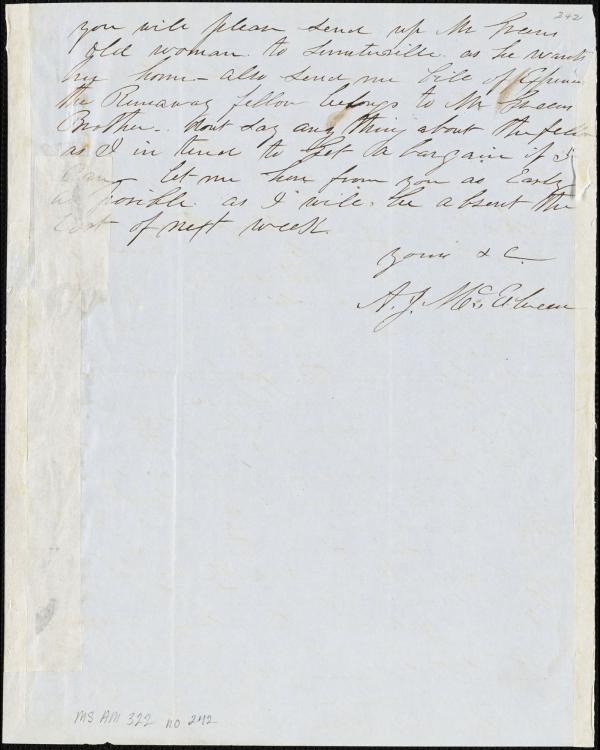 242
you will please send up Mr Greens
old woman to Sumterville. as he wants
her home - also send me bill of Expenses
the Runaway fellow belongs to Mr Greens
Brother - dont say any thing about the fellow
as I in tend to get a bargain if I
Can - let me hear from you as Early
as Possible as I will be absent the
Last of next week.
yours & C.
A. J. McElveen
MS AM 322 no 242